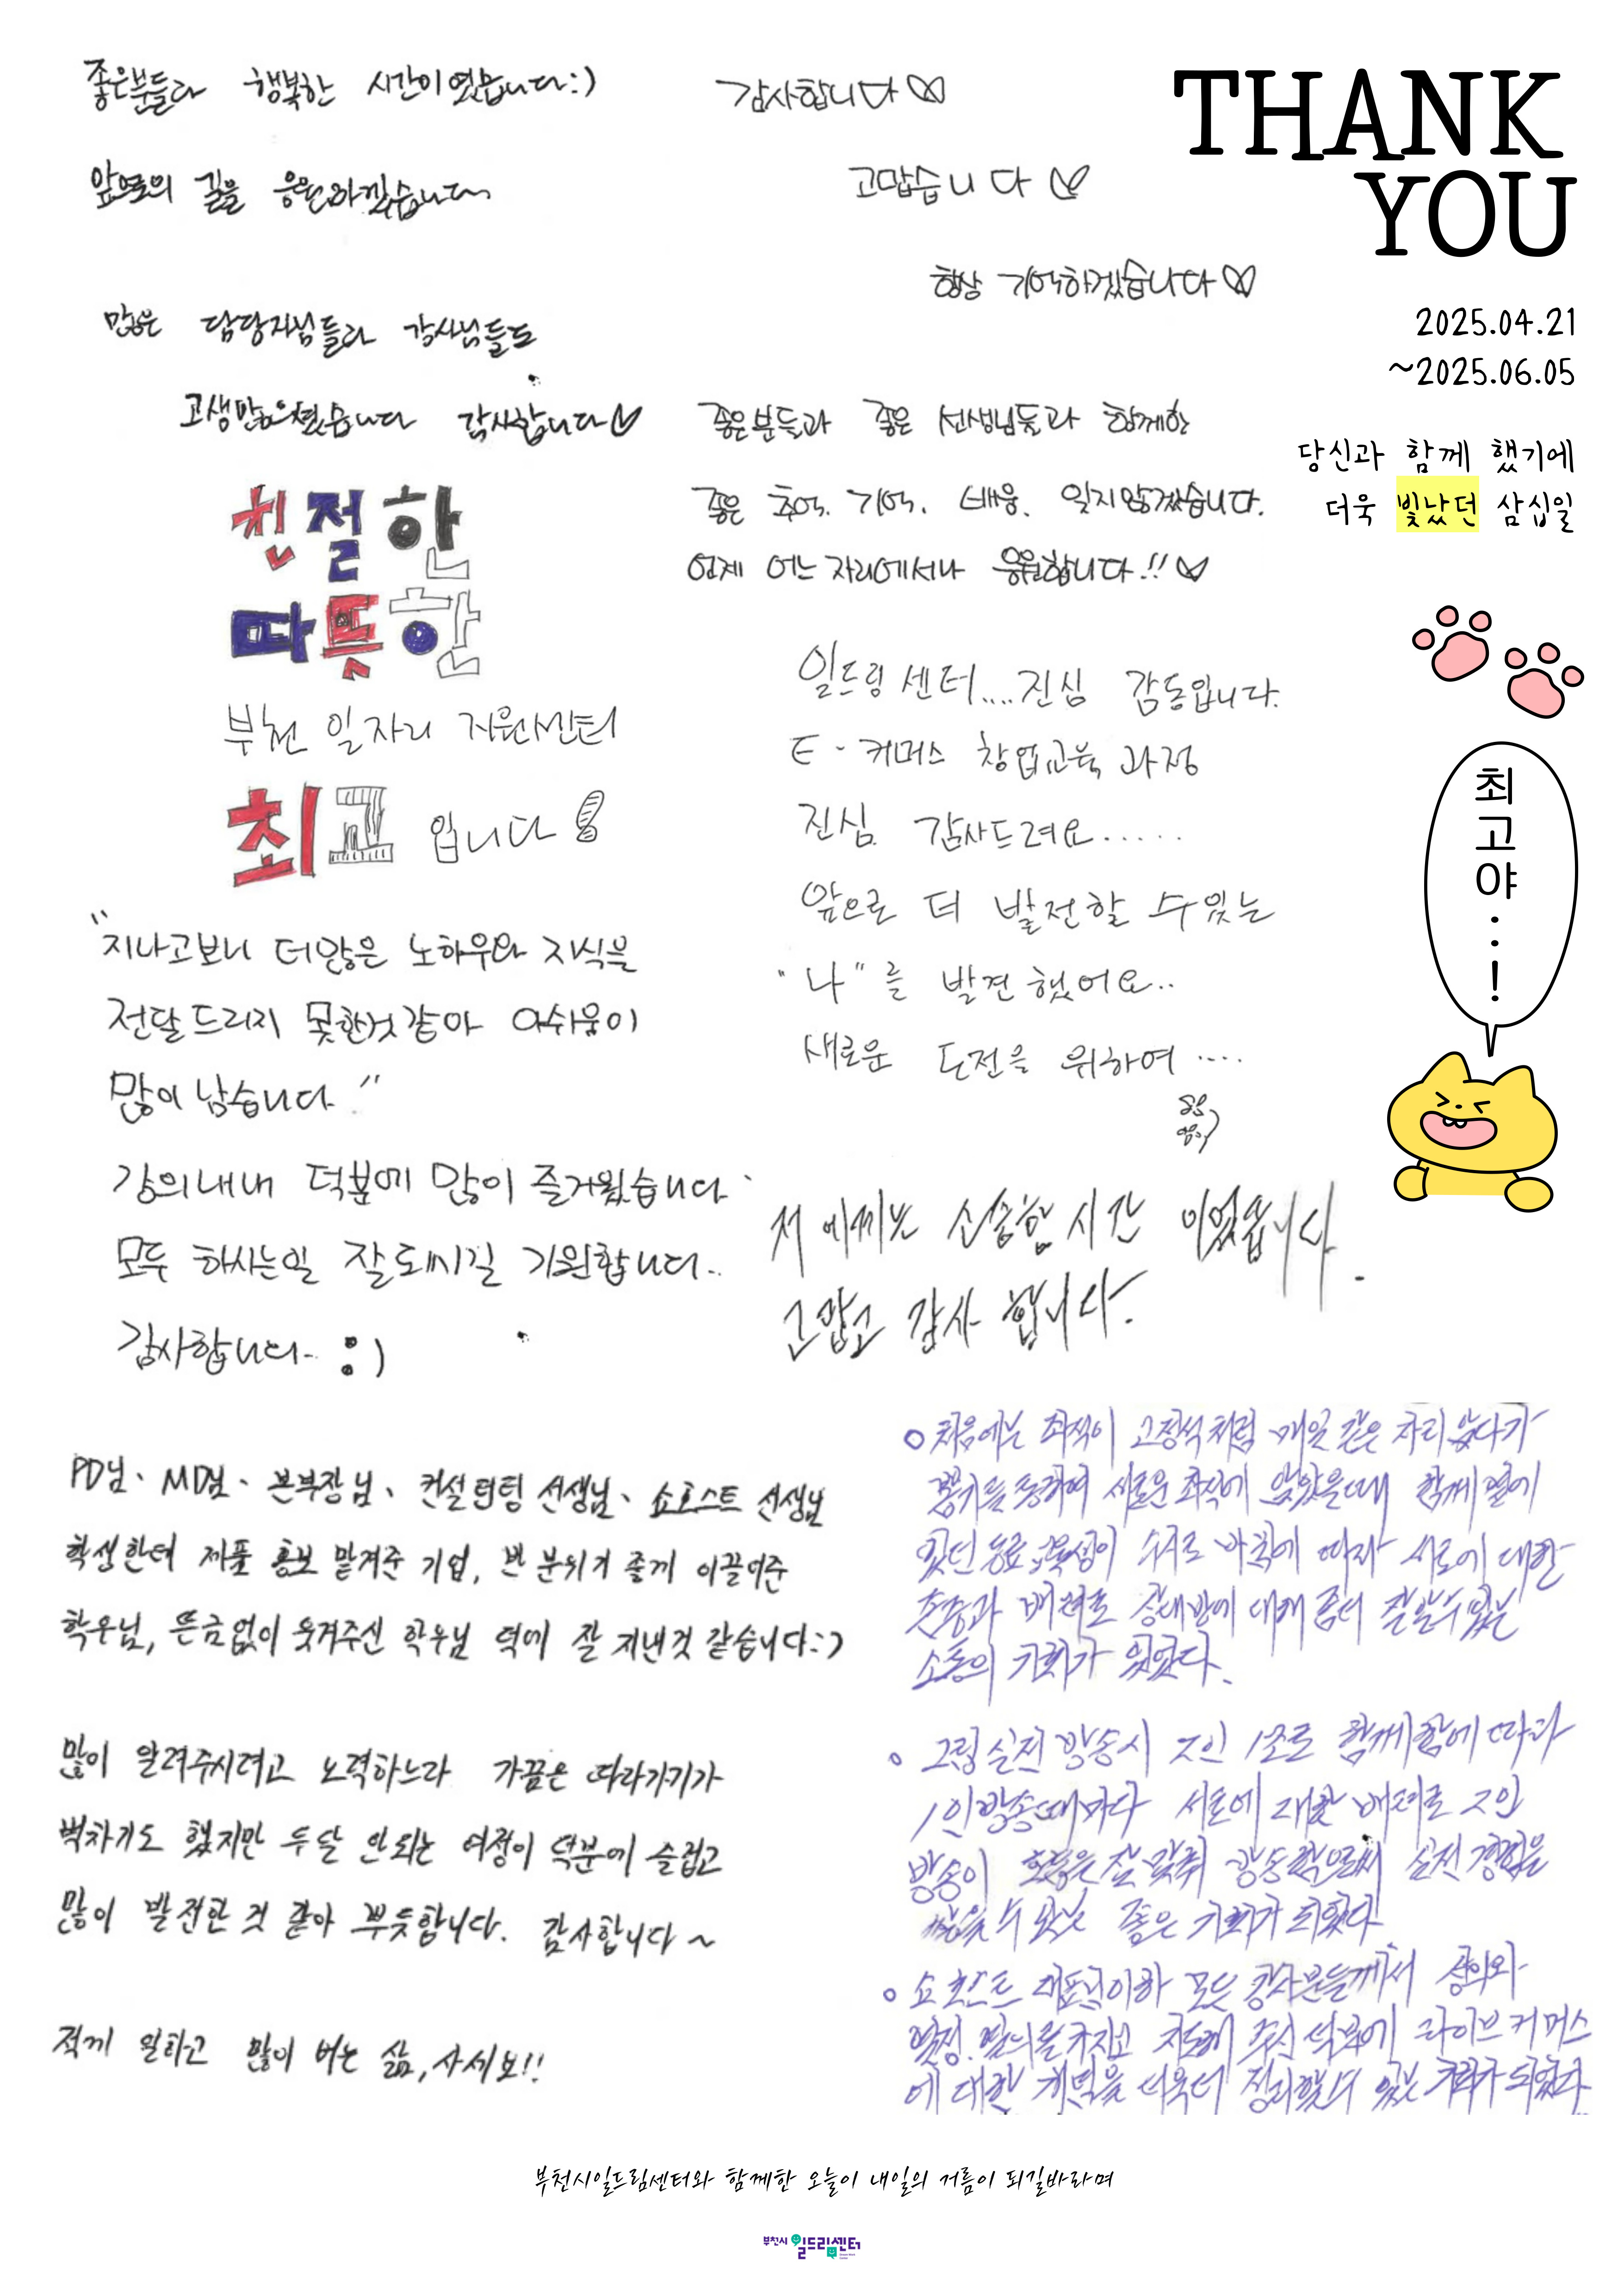 좋은분들과 행복한 시간이였습니다:)
앞으로의 길을 응원하겠습니다.
많은 담당자님들과 강사님들도
고생많으셨습니다 감사합니다♡
감사합니다♡
고맙습니다♡
항상 기억하겠습니다♡
THANK
YOU
2025.04.21
~2025.06.05
당신과 함께 했기에
더욱 빛났던 삼십일
좋은분들과 좋은 선생님들과 함께한
좋은 추억, 기억, 배움, 잊지않겠습니다.
언제 어느 자리에서나 응원합니다!!♡
친절한
따뜻한
부천 일자리 지원센터
최고 입니다!
일드림센터....진심 감동입니다.
E-커머스 창업교육 과정
진심 감사드려요.....
앞으로 더 발전할 수있는
"나"를 발견했어요..
새로운 도전을 위하여....
최고야..!
"지나고보니 더많은 노하우와 지식을
전달드리지 못한것같아 아쉬움이
많이 남습니다."
강의내내 덕분에 많이 즐거웠습니다.
모두 하시는일 잘되시길 기원합니다..
감사합니다. :)
저에게는 소중한 시간 이었습니다.
고맙고 감사 합니다.
PD님, MD님, 본부장님, 컨설턴팅 선생님, 쇼호스트 선생님
학생한테 제품 홍보 맡겨준 기업, 반 분위기 좋게 이끌어준
학우님, 뜬금없이 웃겨주신 학우님 덕에 잘 지낸것 같습니다:)
많이 알려주시려고 노력하느라 가끔은 따라가기가
벅차기도 했지만 두달 안되는 여정이 덕분에 즐겁고
많이 발전한 것 같아 뿌듯합니다. 감사합니다~
적게 일하고 많이 버는 삶, 사세보!!
처음에는 좌석이 고정석처럼 매일 같은 자리 앉다가
뽑기를 통하여 새로운 좌석에 앉았을때 함께 옆에
있던 동료 교육생이 수시로 바뀜에 따라 서로에 대한
존중과 배려로 상대방에 대해 좀더 잘알수있는
소통의 기회가 있었다.
그룹실전 방송시 2인 1조로 함께함에 따라
1인방송때마다 서로에 대한 배려로 2인
방송이 호흡을 잘 맞춰 방송함으로써 실전 경험을
쌓을 수 있는 좋은 기회가 되었다
쇼호스트 대표님이하 모든 강사분들께서 성의와
열정, 열의를 가지고 지도해 주신 덕분에 라이브커머스
에 대한 개념을 더욱더 정리할수 있는 기회가 되었다
부천시일드림센터와 함께한 오늘이 내일의 거름이 되길바라며
부천시 일드림센터